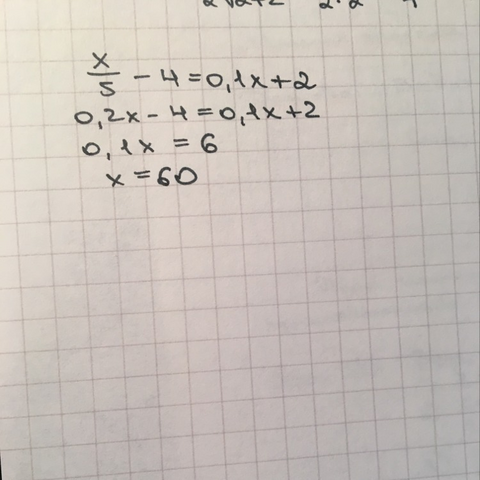 x/5 - 4 = 0,1x + 2
0,2x - 4 = 0,1x + 2
0,1x = 6
x = 60